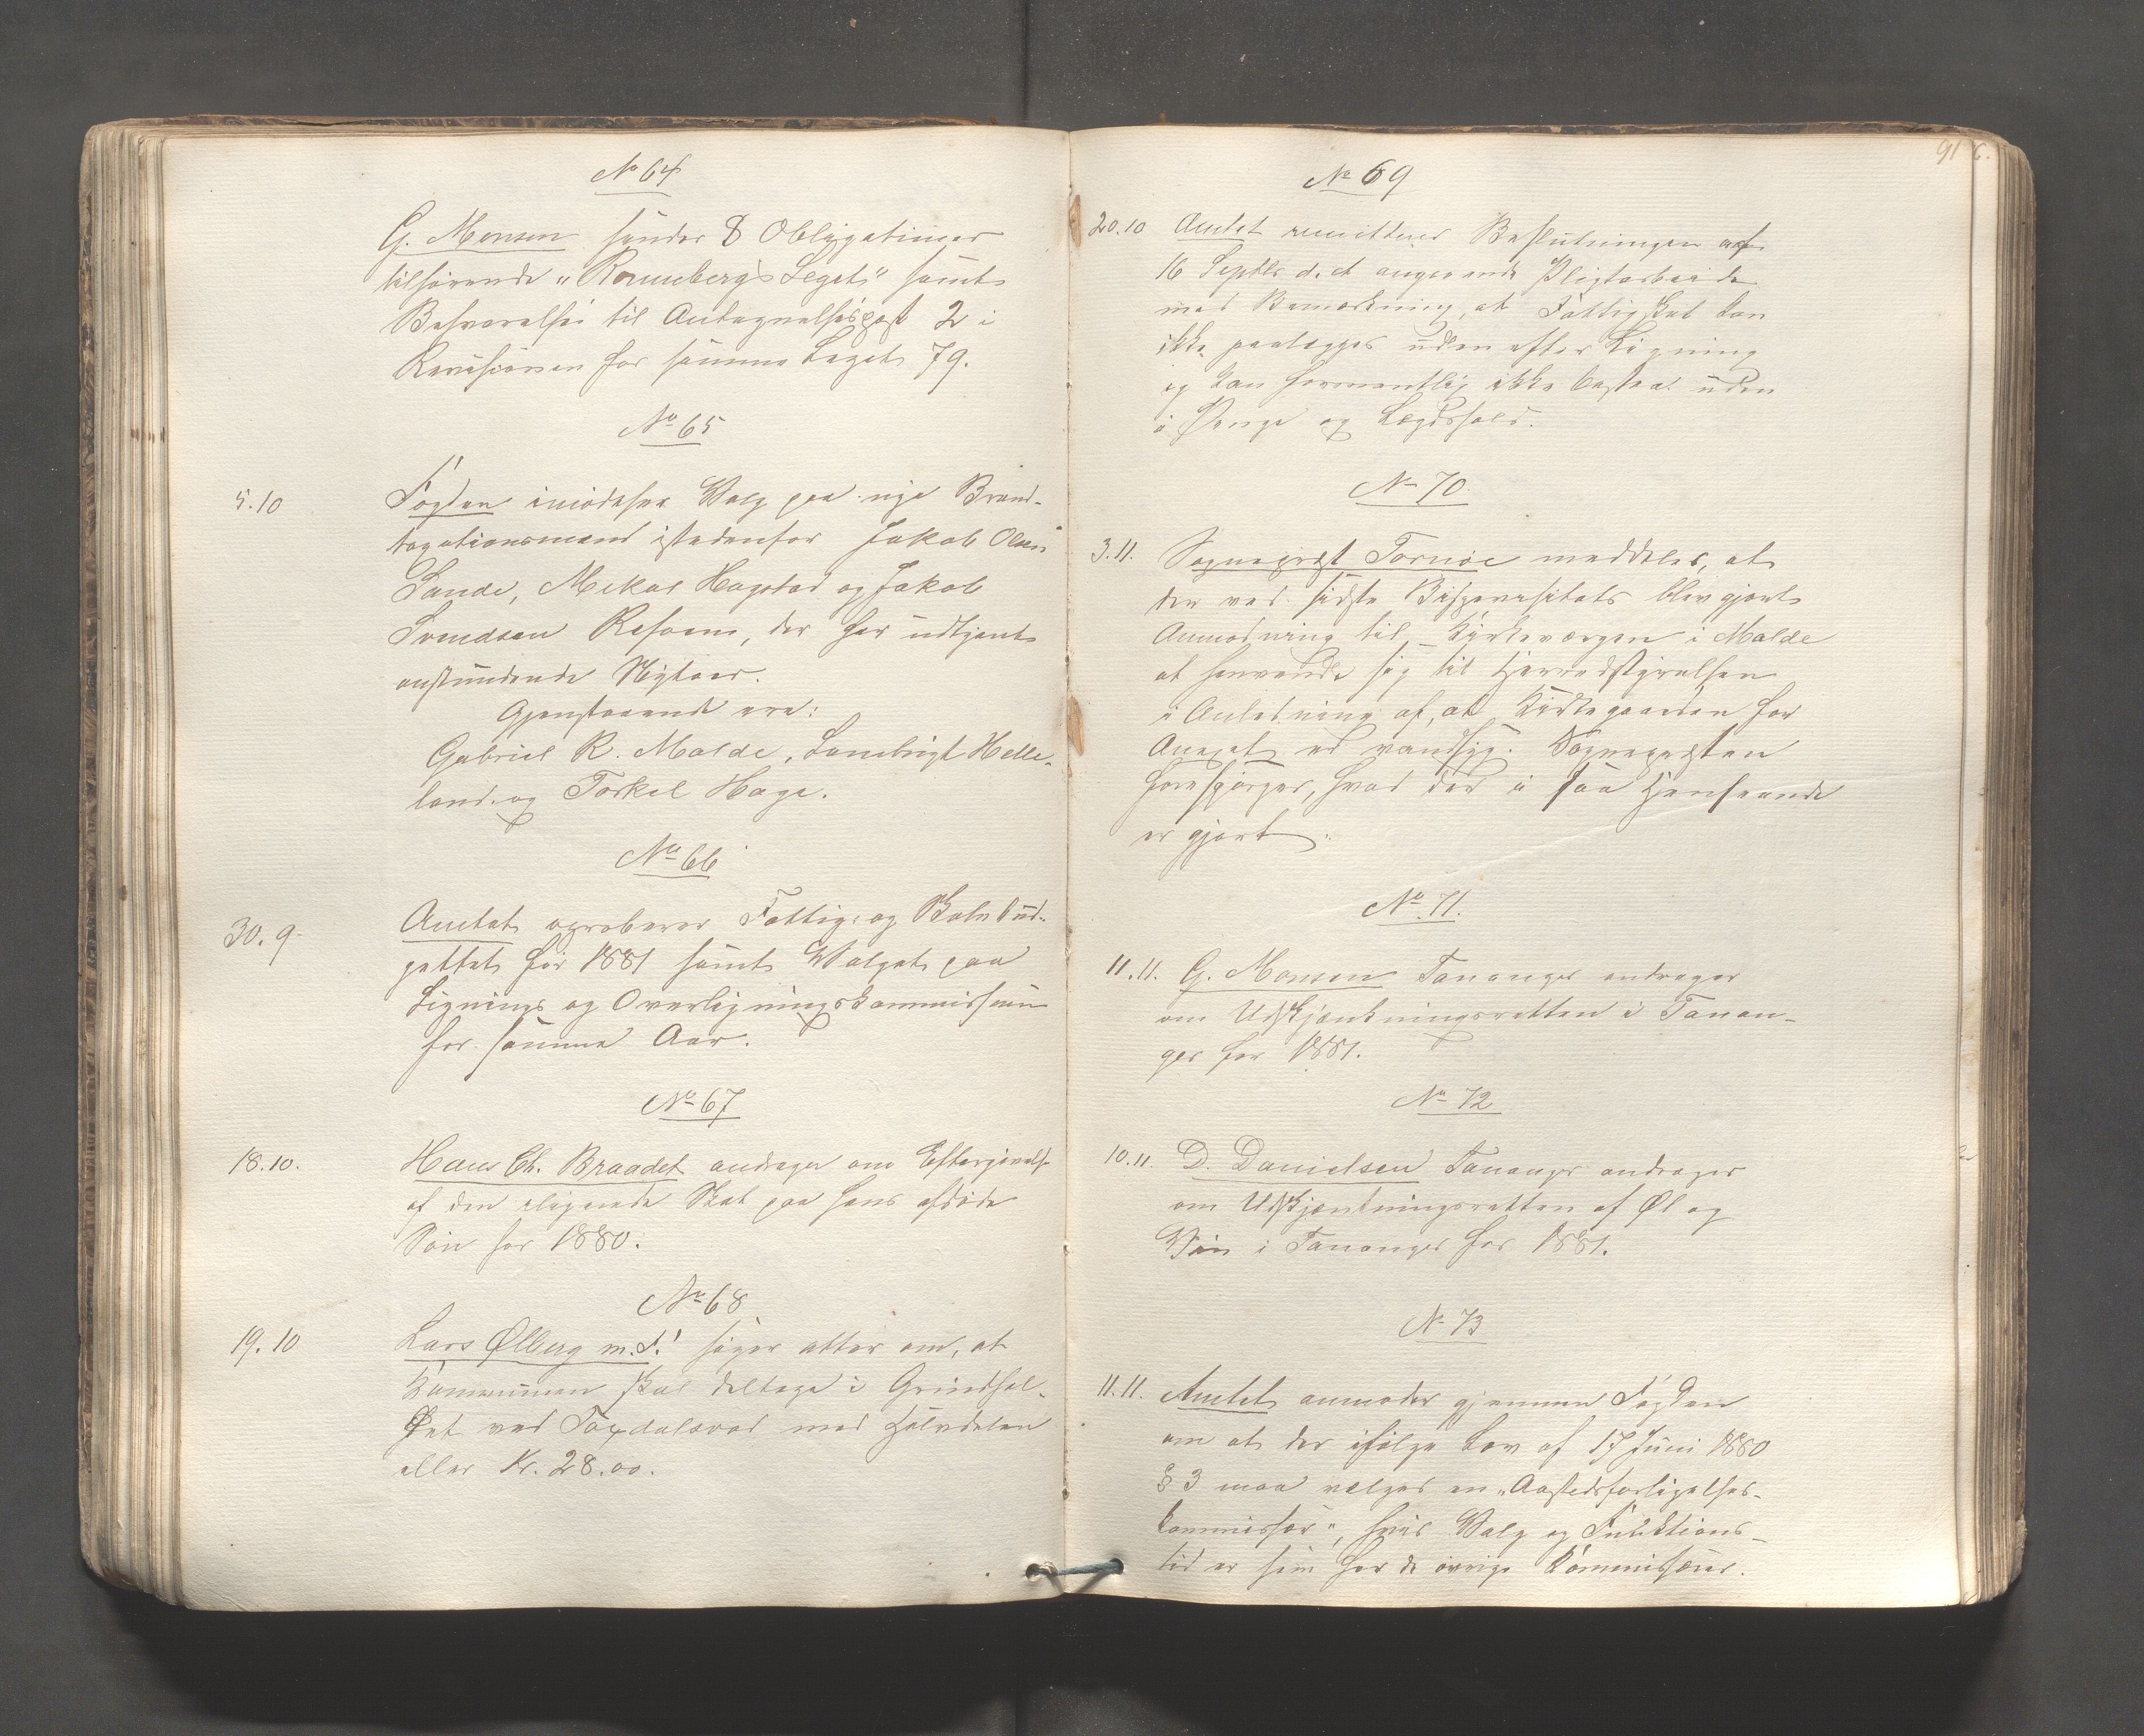 No 64
G. Monsen sender 8 Obligationer
tilhørende „Rommberg's Legat" samt
Besvarelse til Antegnelsespost 2 i
Revisionen for samme Legat 79.
No 65
5.10 Fogden imødeser Valg paa nye Brand-
taxationsmænd istedenfor Jakob Olsen
Sande, Mikal Hagstad og Jakob
Svendsen Refsem, der har udtjent
anstundende Nytaar.
Gjenstaaende ere:
Gabriel R. Malde, Lambrigt Helle-
land og Torkel Haga.
No 66
30.9. Amtet aproberer Fattig- og Skolebud-
gettet for 1881 samt Valget paa
Lignings og Overligningskommission
for samme Aar.
No 67
18.10. Hans Ch. Braadet andrager om Eftergivelse
af den alignede Skat paa hans afdøde
Søn for 1880.
No 68
19.10 Lars Ølberg m.F. søger atter om, at
Kommunen skal deltage i Grindhol-
det ved Taxdalsvad med Halvdelen
eller Kr. 28.00.
91
No 69
20.10 Amtet remitterer Beslutningen af
16 Septbr d. A angaaende Pligtarbeide
med Bemærkning, at Fattigskat kan
ikke paalægges uden efter Ligning
og kan formentlig ikke bestaa uden
i Penge og Lægdshold.
No 70
3.11. Sognepræst Tornøe meddeles, at
der ved sidste Bispevisitats blev gjort
Anmodning til Kirkeværgen i Malde
at henvende sig til Herredstyrelsen
i Anledning af, at Kirkegaarden for
Annexet er vandsyg. Sognepræsten
forespørger, hvad der i saa Henseende
er gjort.
No 71.
11.11. G. Monsen Tananger andrager
om Udskjænkningsretten i Tanan-
ger for 1881.
No 72
10.11 D. Danielsen Tananger andrager
om Udskjænkningsretten af Øl og
Vin i Tananger for 1881.
No 73
11.11. Amtet anmoder gjennem Fogden
om at der ifølge Lov af 17 Juni 1880
§ 3 maa vælges en „Aastedsforligelses-
kommissær", hvis Valg og Funktions-
tid er som for de øvrige Kommissærer.